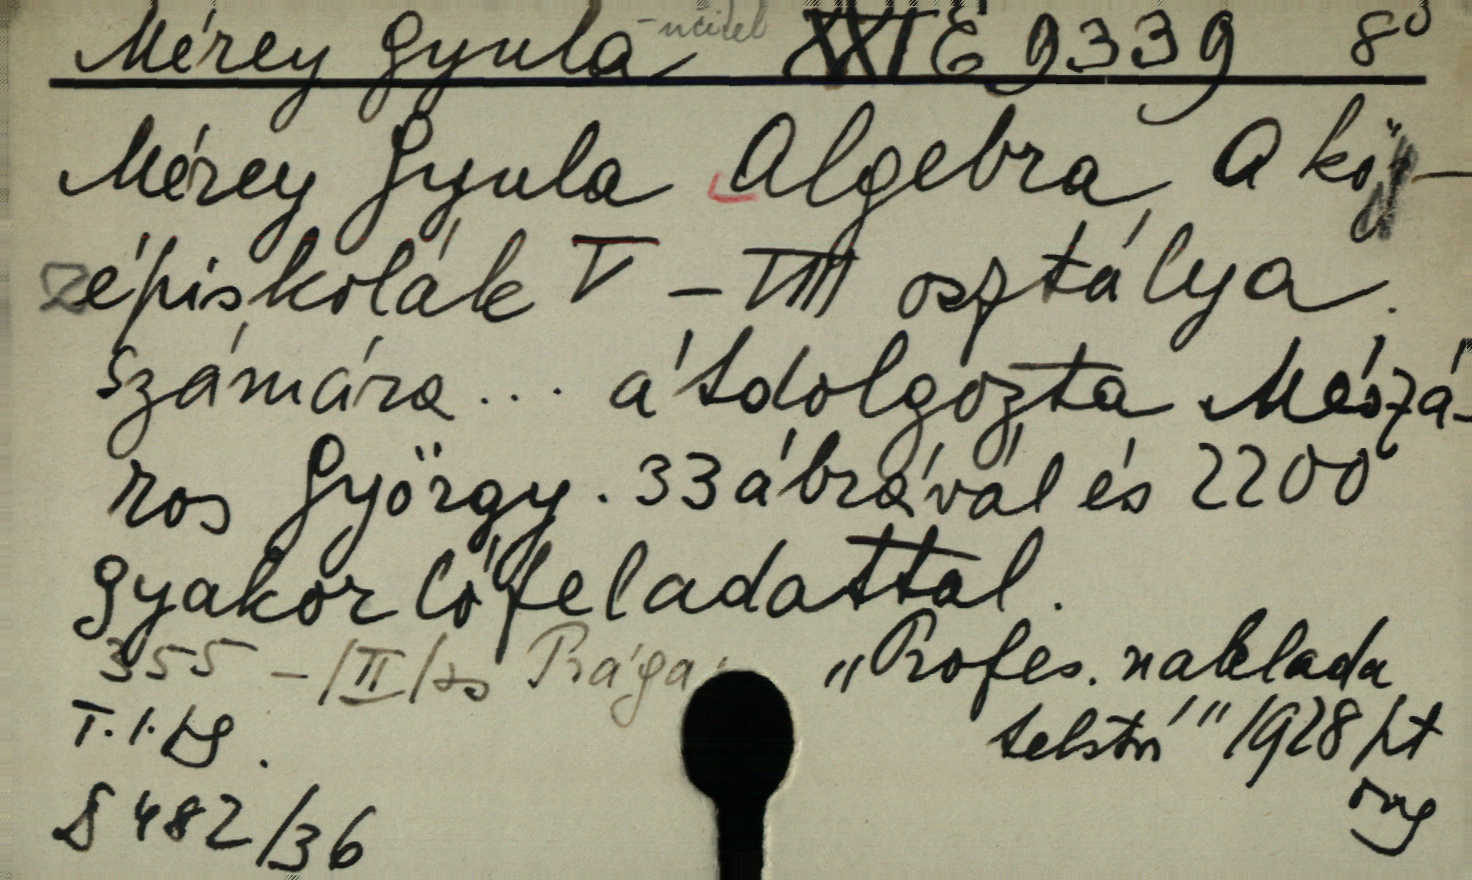 Mérey Gyula - učitel XXI E 9339 8°
Mérey Gyula Algebra A kö-
zépiskolák V - VIII osztálya.
számára... átdolgozta Mészá-
ros György. 33 ábrával és 2200
gyakorlófeladattal.
355 - /II/ Prága: "Profes. naklada
telství" 1928
T. I.
§ 482/36